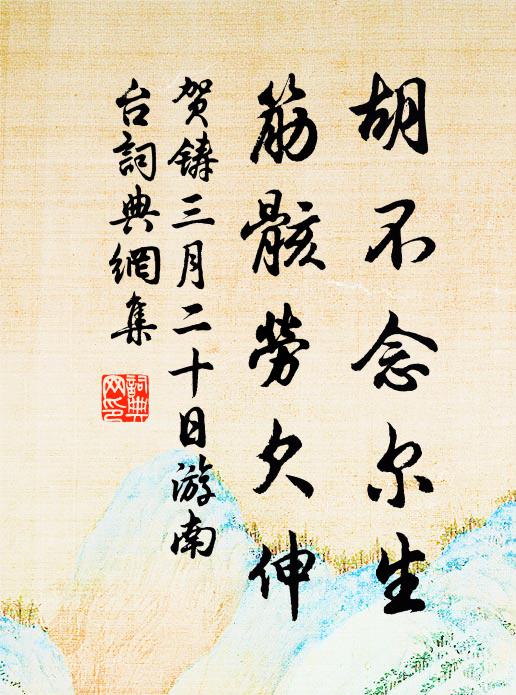 胡不念尔生
筋骸劳欠伸
贺铸三月二十日游南
台詞典網集
詞典
网印